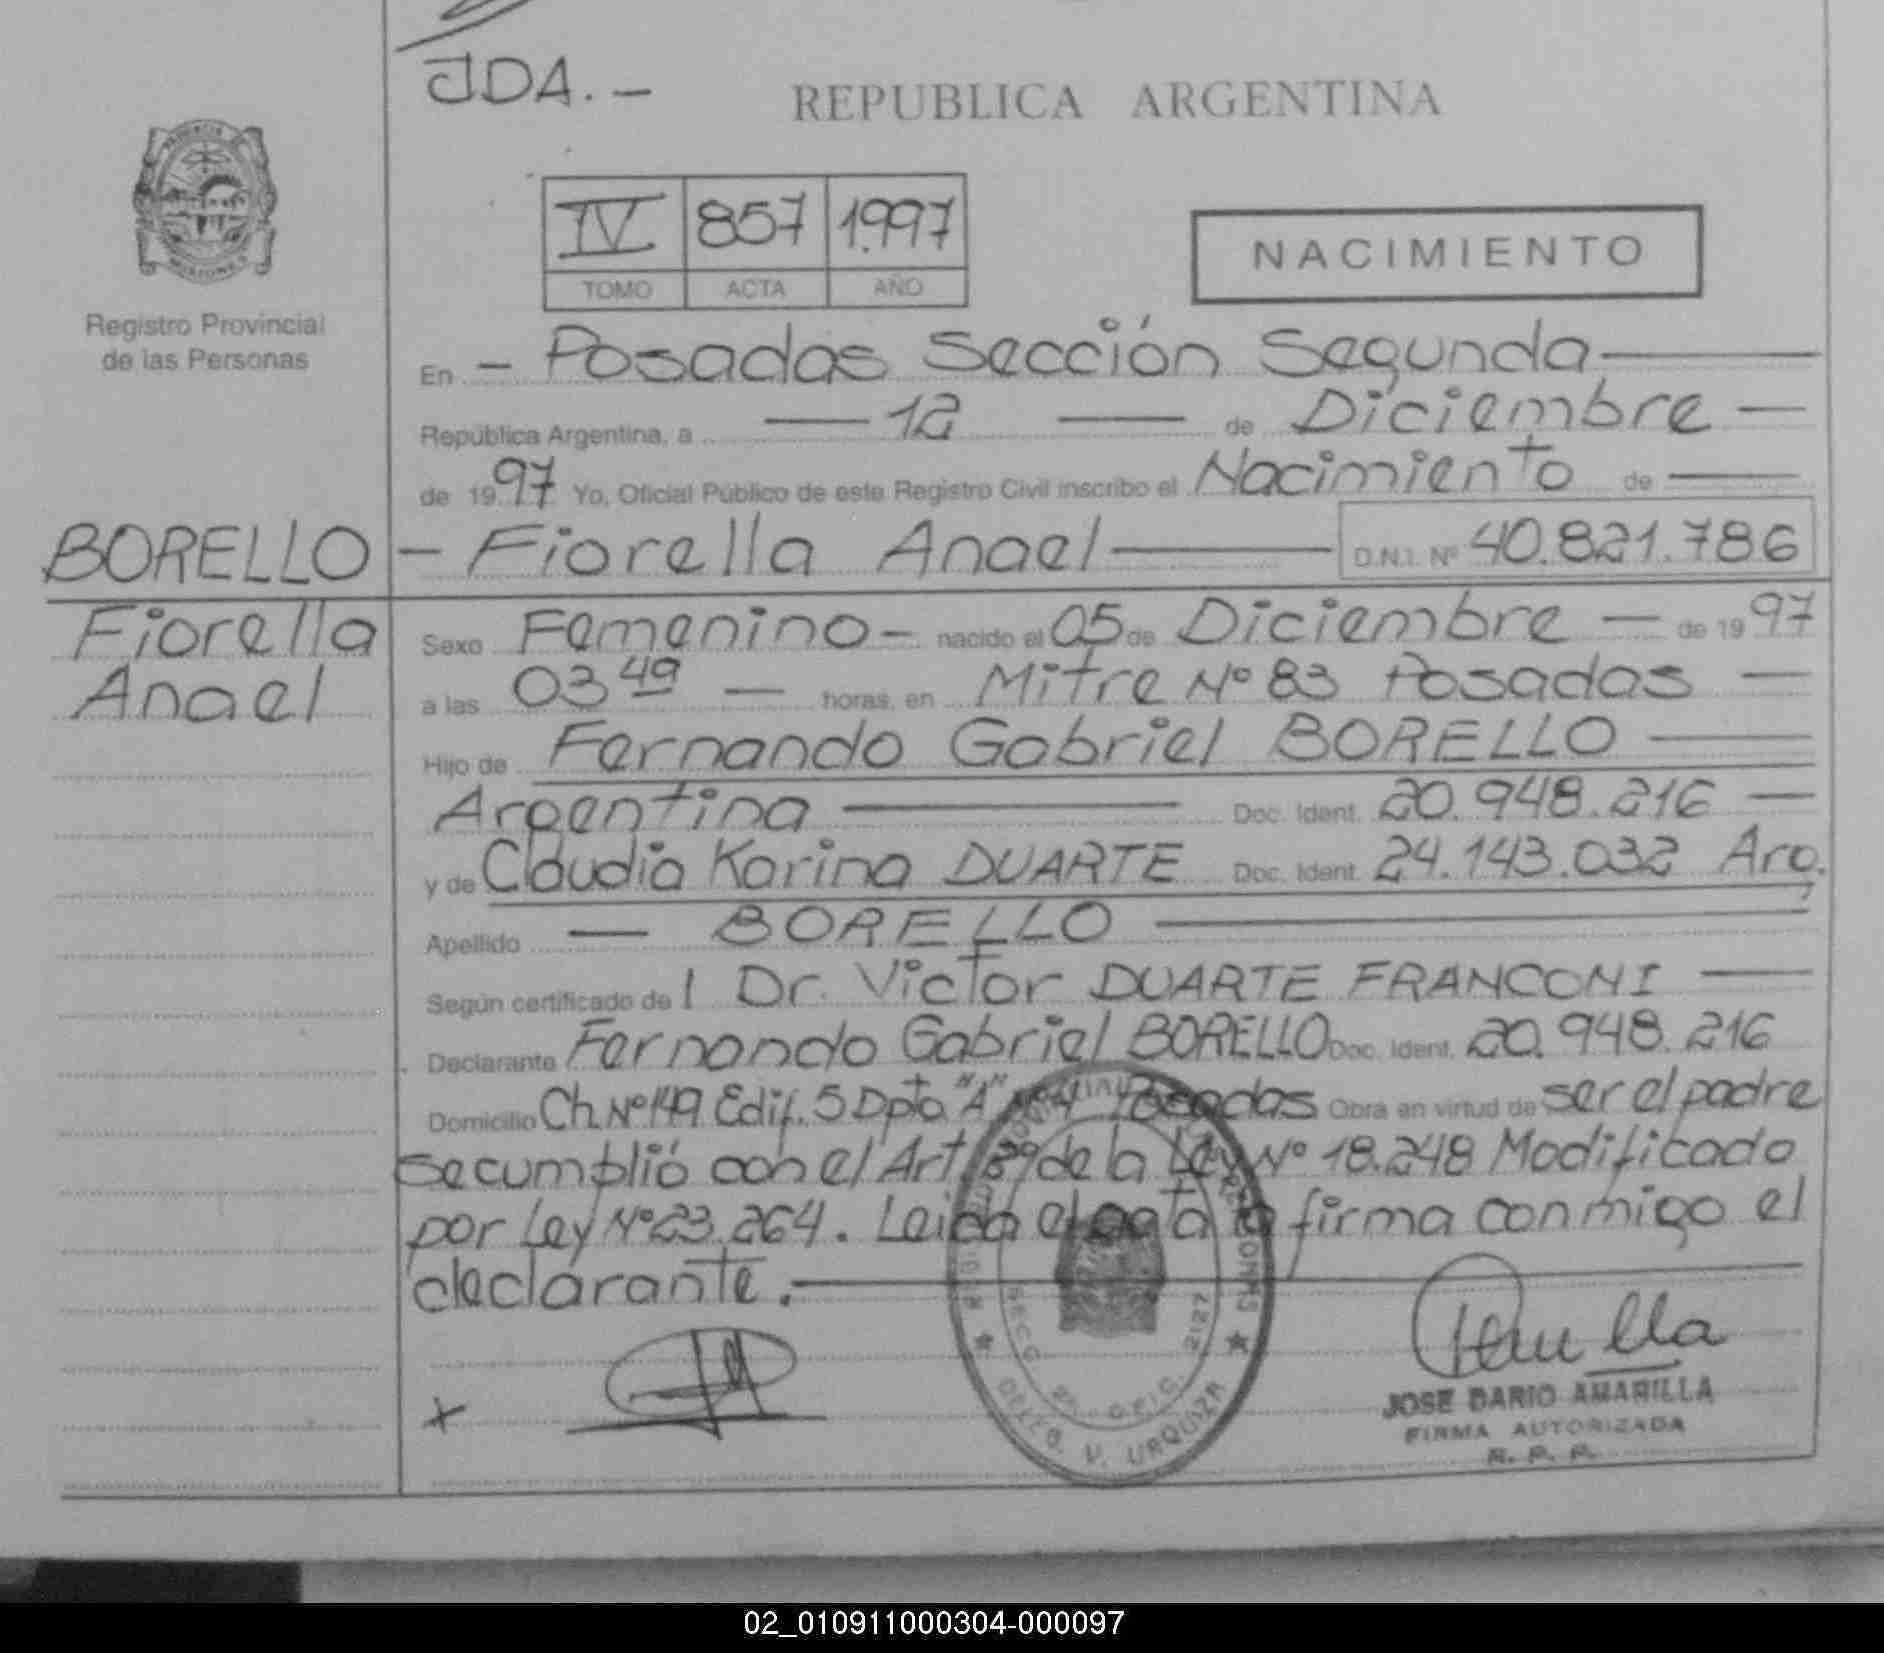 JDA.-
REPUBLICA ARGENTINA
PROVINCIA
MISIONES
Registro Provincial
de las Personas
IV 857 1997
TOMO ACTA AÑO
NACIMIENTO
En - Posadas Sección Segunda
República Argentina, a 12 de Diciembre
de 1997 Yo, Oficial Público de este Registro Civil inscribo el Nacimiento de
BORELLO - Fiorella Anael D.N.I. Nº 40.821.786
Fiorella
Anael
Sexo Femenino - nacido el 05 de Diciembre - de 1997
a las 03 49 - horas, en Mitre Nº 83 Posadas -
Hijo de Fernando Gabriel BORELLO
Argentina Doc. Ident. 20.948.216 -
y de Claudia Karina DUARTE Doc. Ident. 24.143.032 Arg.
Apellido - BORELLO
Según certificado de l Dr. Victor DUARTE FRANCONI
Declarante Fernando Gabriel BORELLO Doc. Ident. 20.948.216
Domicilio Ch. Nº 149 Edif. 5 Dpto "A" Posadas Obra en virtud de ser el padre
se cumplió con el Art. de la Ley Nº 18.248 Modificado
por Ley Nº 23.264. Leida el acta la firma conmigo el
declarante.
x
SECC. 2ª OFIC. 2127
DELEG. V. URQUIZA
JOSE DARIO AMARILLA
FIRMA AUTORIZADA
R. P. P.
02_010911000304-000097